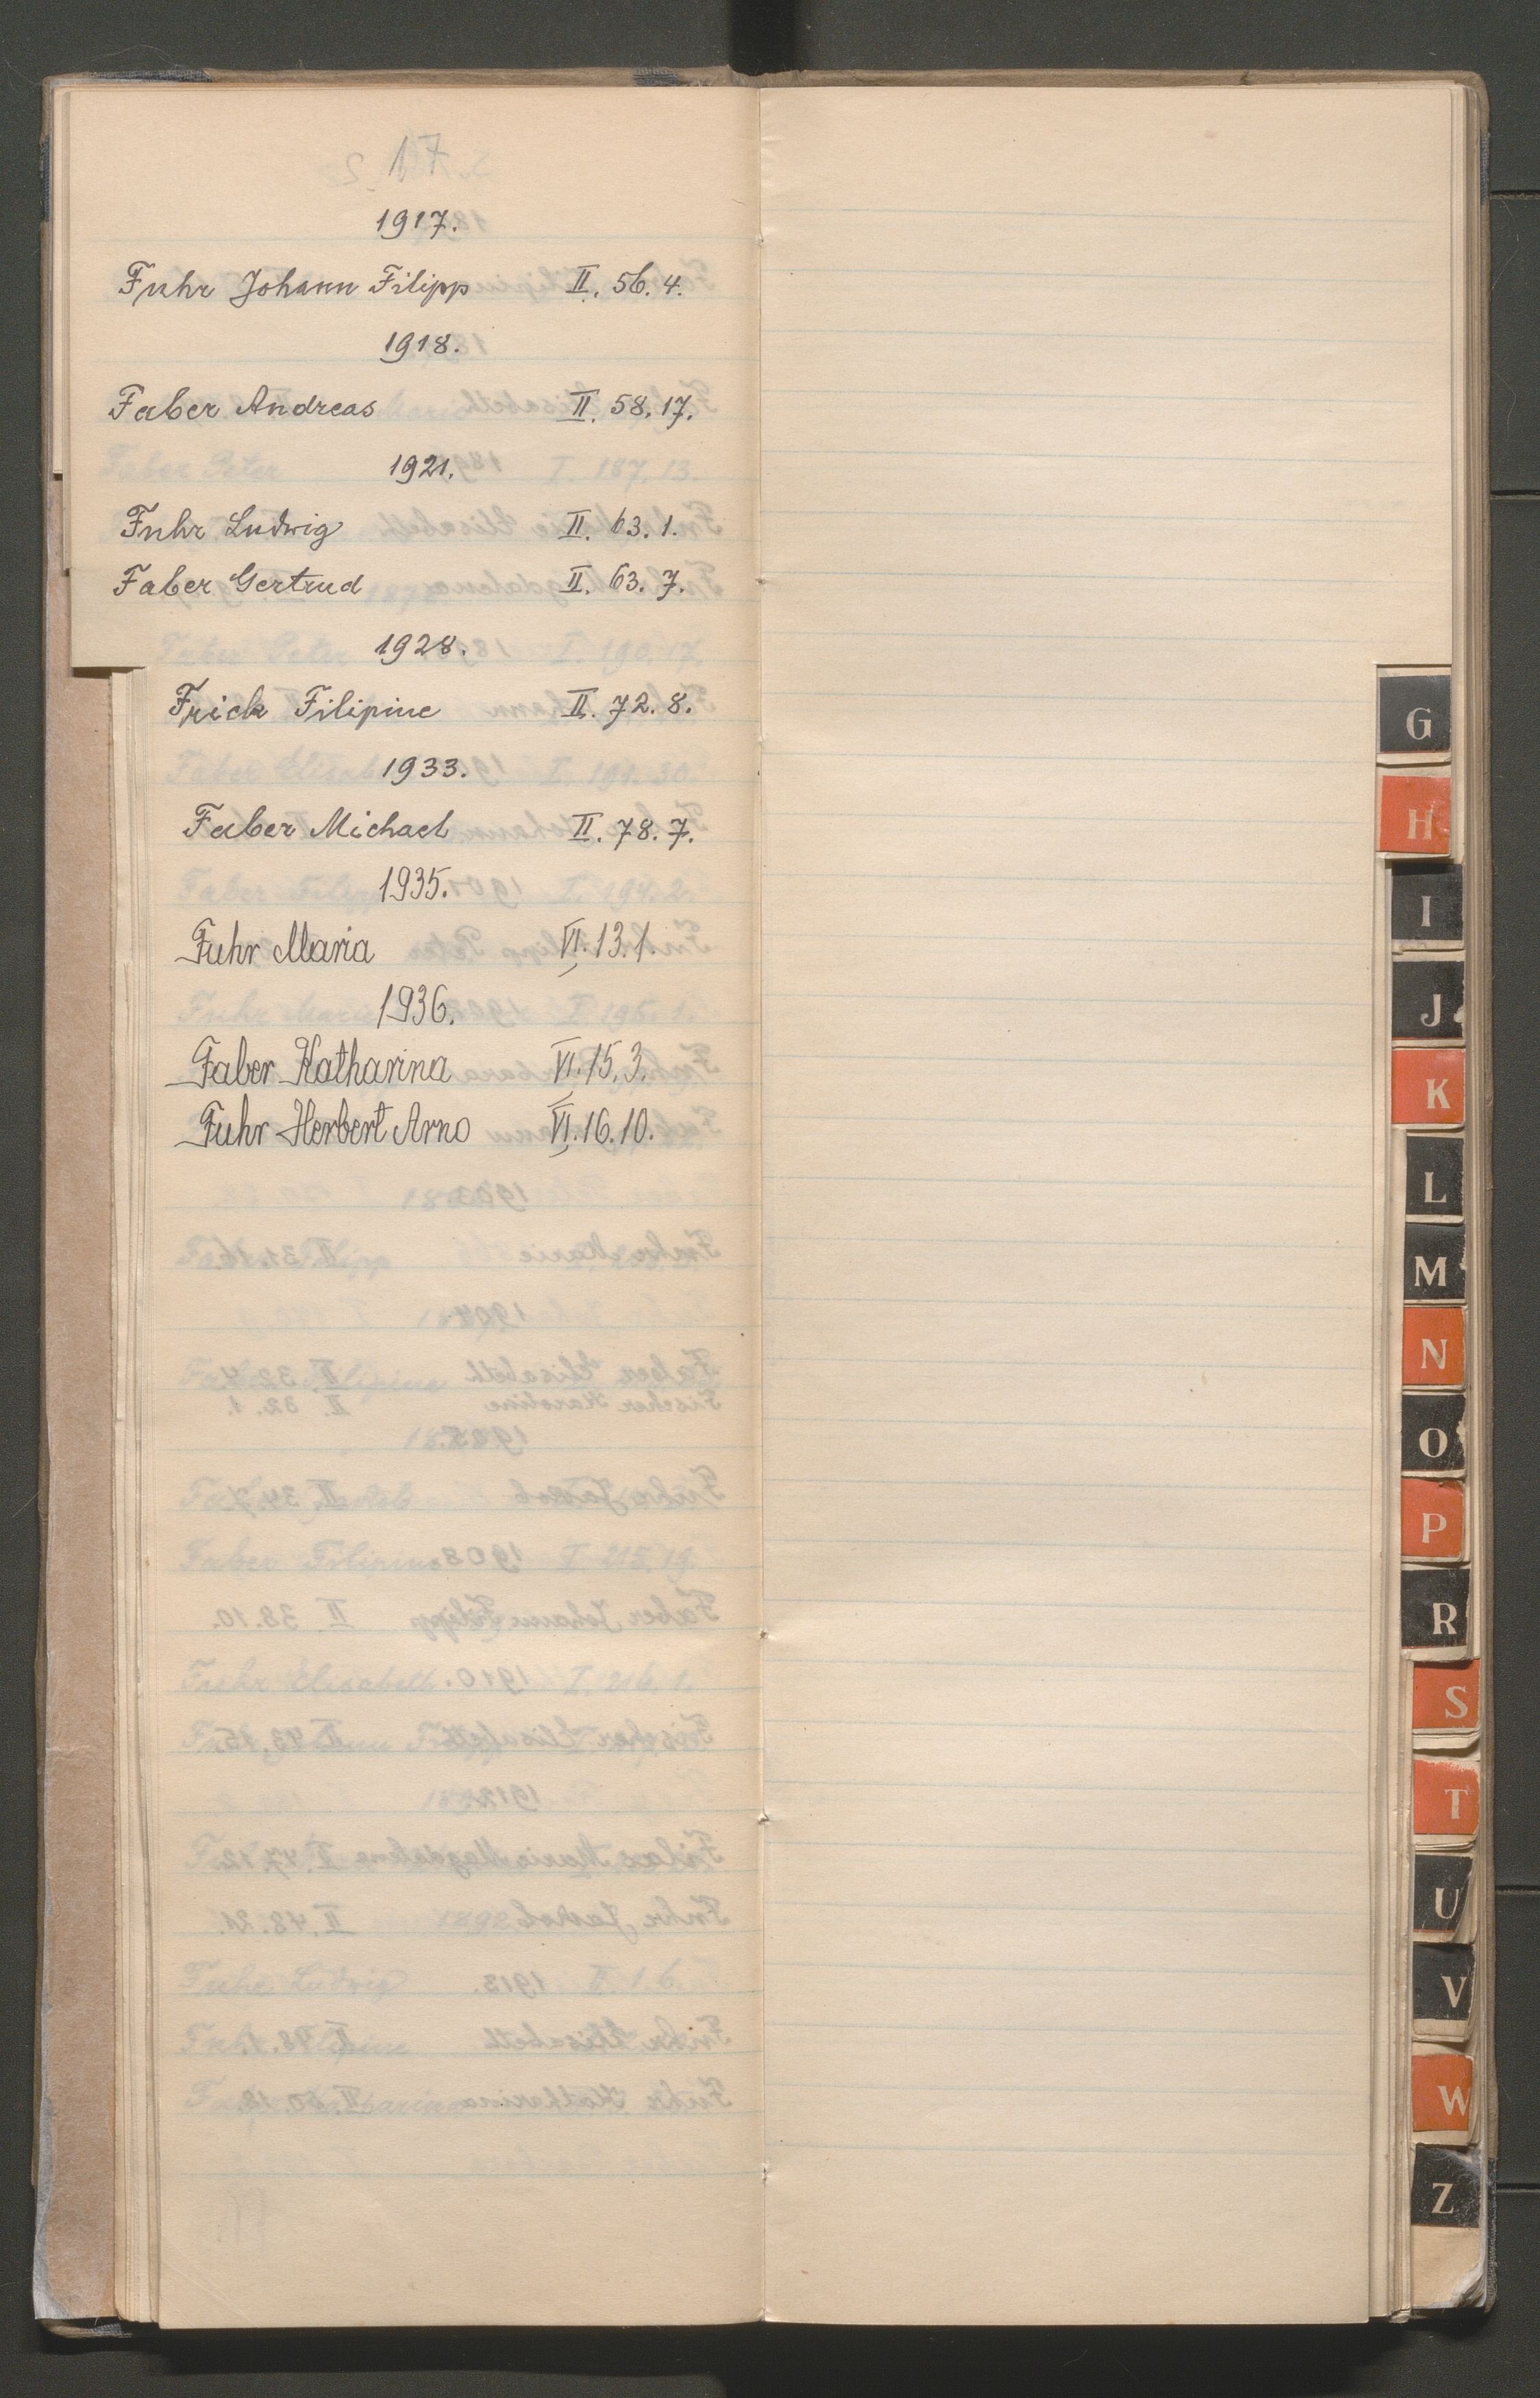 17
1917.
Fuhr Johann Filipp II. 56. 4.
1918.
Faber Andreas II. 58. 17.
1921.
Fuhr Ludwig II. 63. 1.
Faber Gertrud II. 63. 7.
1928.
Frick Filipine II. 72. 8.
1933.
Faber Michael II. 78. 7.
1935.
Fuhr Maria VI. 13. 1.
1936.
Faber Katharina VI. 15. 3.
Fuhr Herbert Arno VI. 16. 10.
G
H
I
J
K
L
M
N
O
P
R
S
T
U
V
W
Z